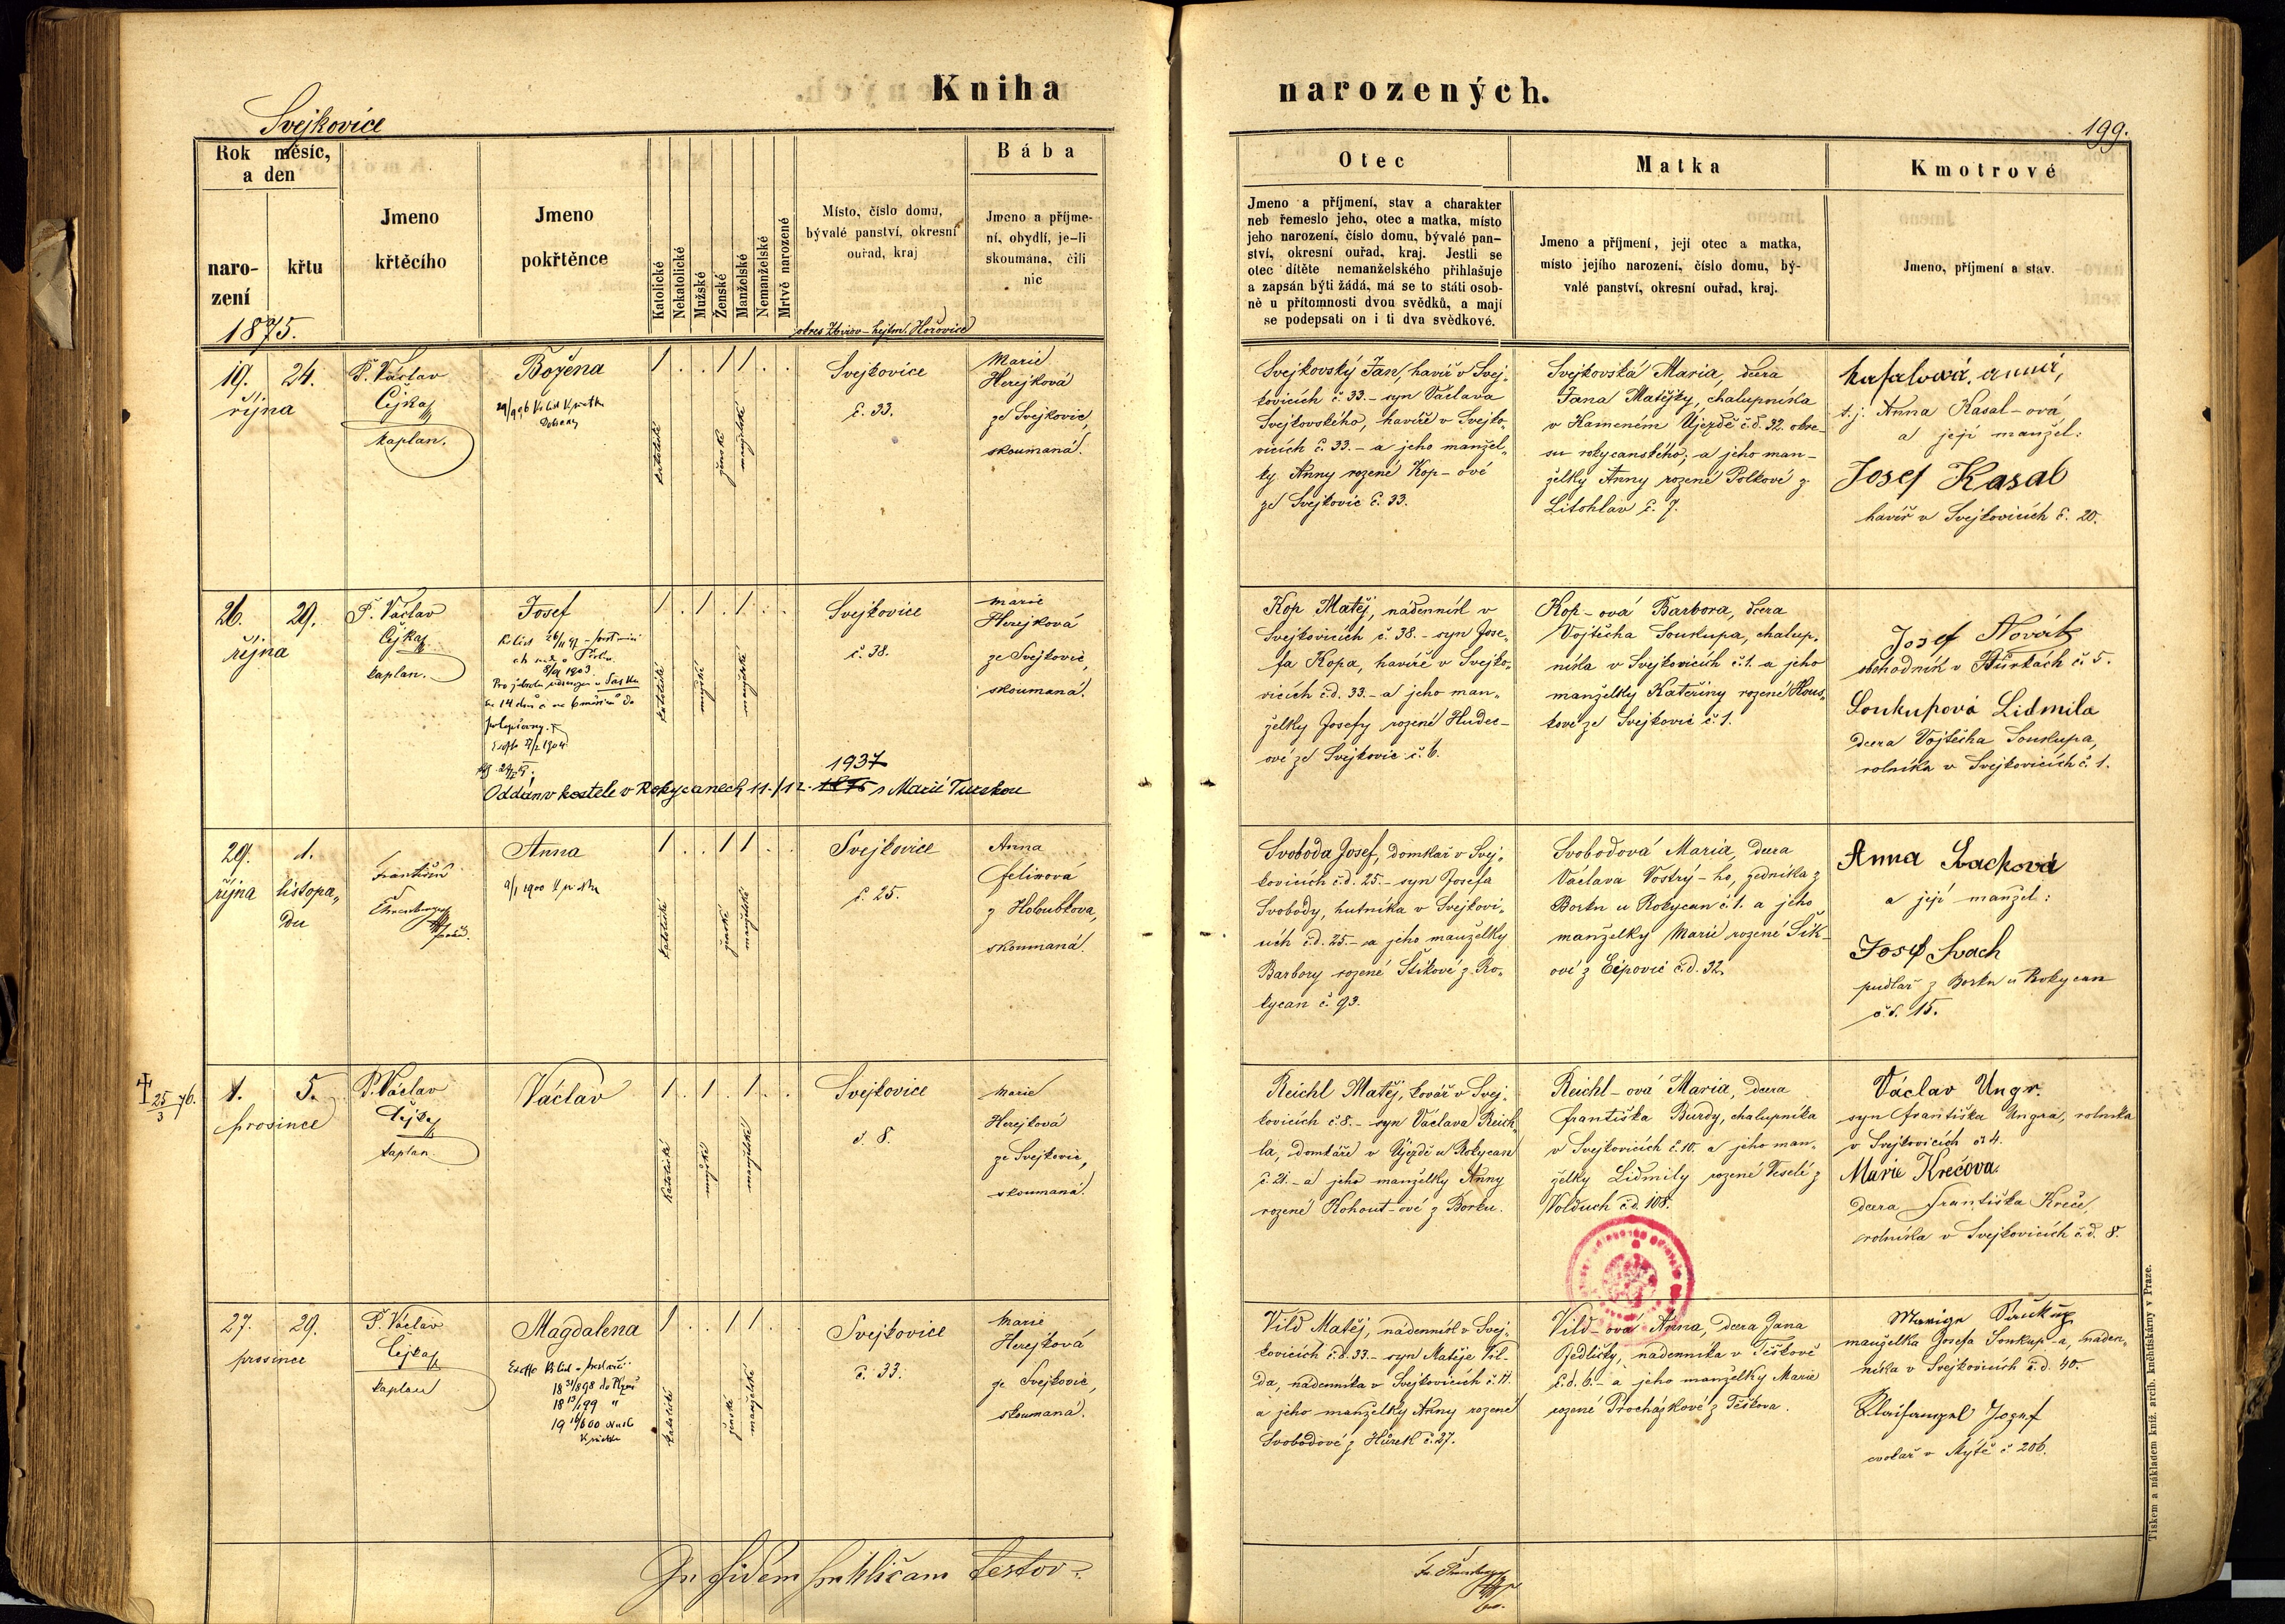 Kniha narozených.
Svejkovice
199.
Rok měsíc,
a den
naro-
zení
křtu
Jmeno
křtěcího
Jmeno
pokřtěnce
Katolické
Nekatolické
Mužské
Ženské
Manželské
Nemanželské
Mrtvě narozené
Místo, číslo domu,
bývalé panství, okresní
ouřad, kraj
Bába
Jmeno a příjme-
ní, obydlí, je-li
skoumána, čili
nic
Otec
Jmeno a příjmení, stav a charakter
neb řemeslo jeho, otec a matka, místo
jeho narození, číslo domu, bývalé pan-
ství, okresní ouřad, kraj. Jestli se
otec dítěte nemanželského přihlašuje
a zapsán býti žádá, má se to státi osob-
ně u přítomnosti dvou svědků, a mají
se podepsati on i ti dva svědkové.
Matka
Jmeno a příjmení, její otec a matka,
místo jejího narození, číslo domu, bý-
valé panství, okresní ouřad, kraj.
Kmotrové
Jmeno, příjmení a stav.
1875.
okres Zbirov – hejtm. Hořovice
19. 24.
října
P. Václav
Čejka
kaplan.
Božena
katolické
ženské
manželské
Svejkovice
č. 33.
Marie
Herejková
ze Svejkovic,
skoumaná.
Svejkovský Jan, havíř v Svej-
kovicích č. 33. – syn Václava
Svejkovského, havíře v Svejko-
vicích č. 33. – a jeho manžel-
ky Anny rozené Kop-ové
ze Svejkovic č. 33.
Svejkovská Maria, dcera
Jana Matějky, chalupníka
v Kameném Újezdě č.d. 32. okre-
su rokycanského; a jeho man-
želky Anny rozené Polkové z
Litohlav č. 7.
t. j. Anna Kasal-ová
a její manžel:
Josef Kasal
havíř v Svejkovicích č. 20.
26. 29.
října
P. Václav
Čejka
kaplan.
Josef
katolické
mužské
manželské
Svejkovice
č. 38.
Marie
Herejková
ze Svejkovic,
skoumaná.
1937
Oddán v kostele v Rokycanech 11./12. 1875 s Marií Turskou
Kop Matěj, nádenník v
Svejkovicích č. 38. – syn Jose-
fa Kopa, havíře v Svejko-
vicích č.d. 33. – a jeho man-
želky Josefy rozené Hudec-
ové ze Svejkovic č. 6.
Kop-ová Barbora, dcera
Vojtěcha Soukupa, chalup-
níka v Svejkovicích č. 1. a jeho
manželky Kateřiny rozené Hous-
kové ze Svejkovic č. 1.
Josef Novák
obchodník v Hůrkách č. 5.
Soukupová Lidmila
dcera Vojtěcha Soukupa,
rolníka v Svejkovicích č. 1.
29. 1.
října listopa-
du
František
Anna
katolické
ženské
manželské
Svejkovice
č. 25.
Anna
Felixová
z Holoubkova,
skoumaná.
Svoboda Josef, domkář v Svej-
kovicích č.d. 25. – syn Josefa
Svobody, hutníka v Svejkovi-
cích č.d. 25. – a jeho manželky
Barbory rozené Šikové z Ro-
kycan č. 93.
Svobodová Maria, dcera
Václava Vostrý-ho, zedníka z
Borku u Rokycan č. 1. a jeho
manželky Marie rozené Šik-
ové z Ejpovic č.d. 32.
Anna Svachová
a její manžel:
Josef Svach
pudlař z Borku u Rokycan
č.d. 15.
25/3 76.
1. 5.
prosince
P. Václav
Čejka
kaplan.
Václav
katolické
mužské
manželské
Svejkovice
č. 8.
Marie
Herejková
ze Svejkovic,
skoumaná.
Reichl Matěj, kovář v Svej-
kovicích č. 8. – syn Václava Reich-
la, domkáře v Újezdě u Rokycan
č. 21. – a jeho manželky Anny
rozené Kohout-ové z Borku.
Reichl-ová Maria, dcera
Františka Burdy, chalupníka
v Svejkovicích č. 10. a jeho man-
želky Lidmily rozené Veselé z
Volduch č.d. 108.
Václav Ungr.
syn Františka Ungra, rolníka
v Svejkovicích č. 4.
Marie Krečova.
dcera Františka Kreče,
rolníka v Svejkovicích č.d. 8.
27. 29.
prosince
P. Václav
Čejka
kaplan
Magdalena
katolické
ženské
manželské
Svejkovice
č. 33.
Marie
Herejková
ze Svejkovic,
skoumaná.
Vild Matěj, nádenník v Svej-
kovicích č.d. 33. – syn Matěje Vil-
da, nádenníka v Svejkovicích č. 11.
a jeho manželky Anny rozené
Svobodové z Hůrek č. 27.
Vild-ová Anna, dcera Jana
Jedličky, nádenníka v Těškově
č.d. 6. – a jeho manželky Marie
rozené Procházkové z Těškova.
manželka Josefa Soukup-a, náden-
níka v Svejkovicích č.d. 40.
Josef
cvokař v Mýtě č. 206.
In fidem
Tiskem a nákladem kníž. arcib. kněhtiskárny v Praze.